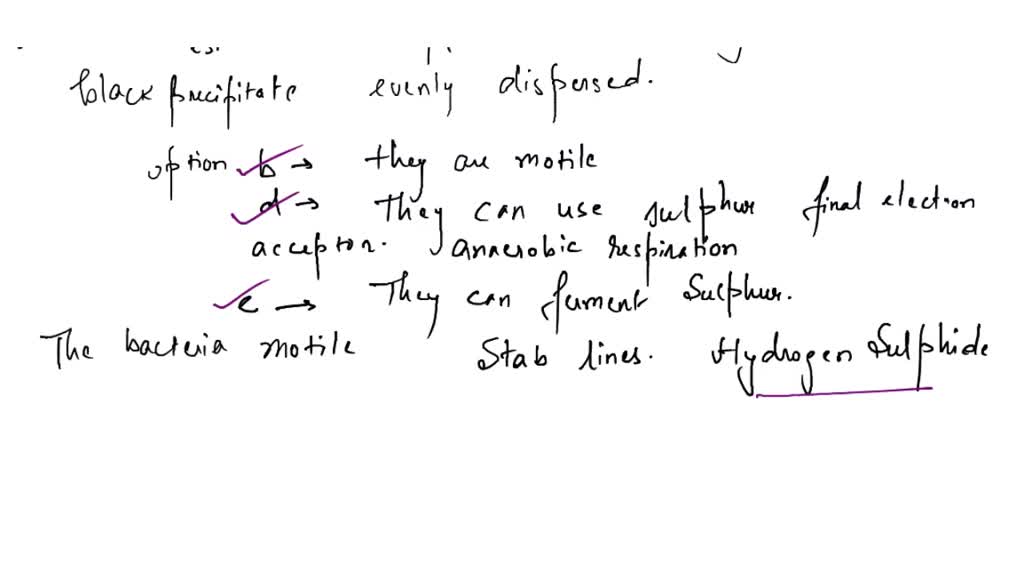 black precipitate evenly dispersed.
option b → they are motile
d → They can use sulphur final electron
acceptor. anaerobic respiration
e → They can ferment Sulphur.
The bacteria motile Stab lines. Hydrogen Sulphide